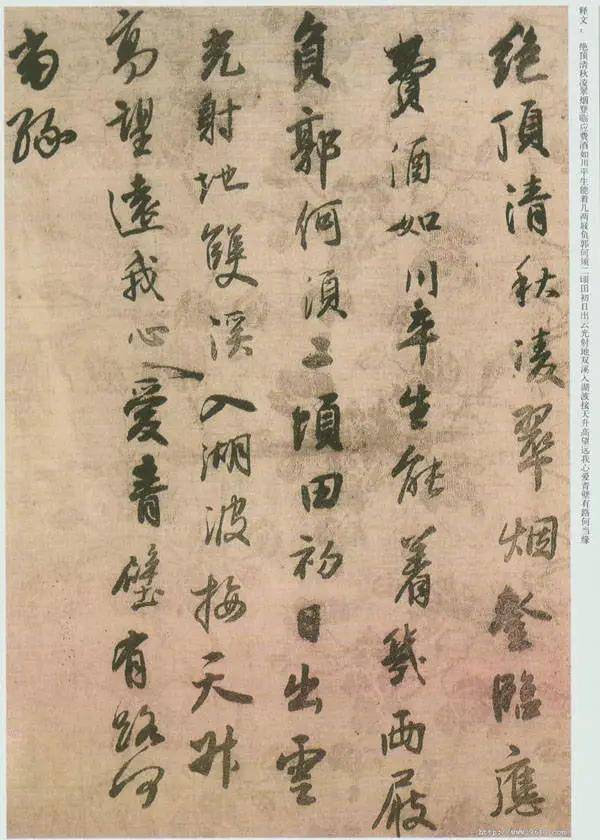 释文：
绝顶清秋凌翠烟登临应费酒如川平生能着几两屐负郭何须二顷田初日出云光射地双溪入湖波接天升高望远我心爱青壁有路何当缘
絕頂清秋凌翠烟登臨應
費酒如川平生能着幾兩屐
負郭何須二頃田初日出雲
光射地雙溪入湖波接天升
高望遠我心愛青壁有路何
當緣